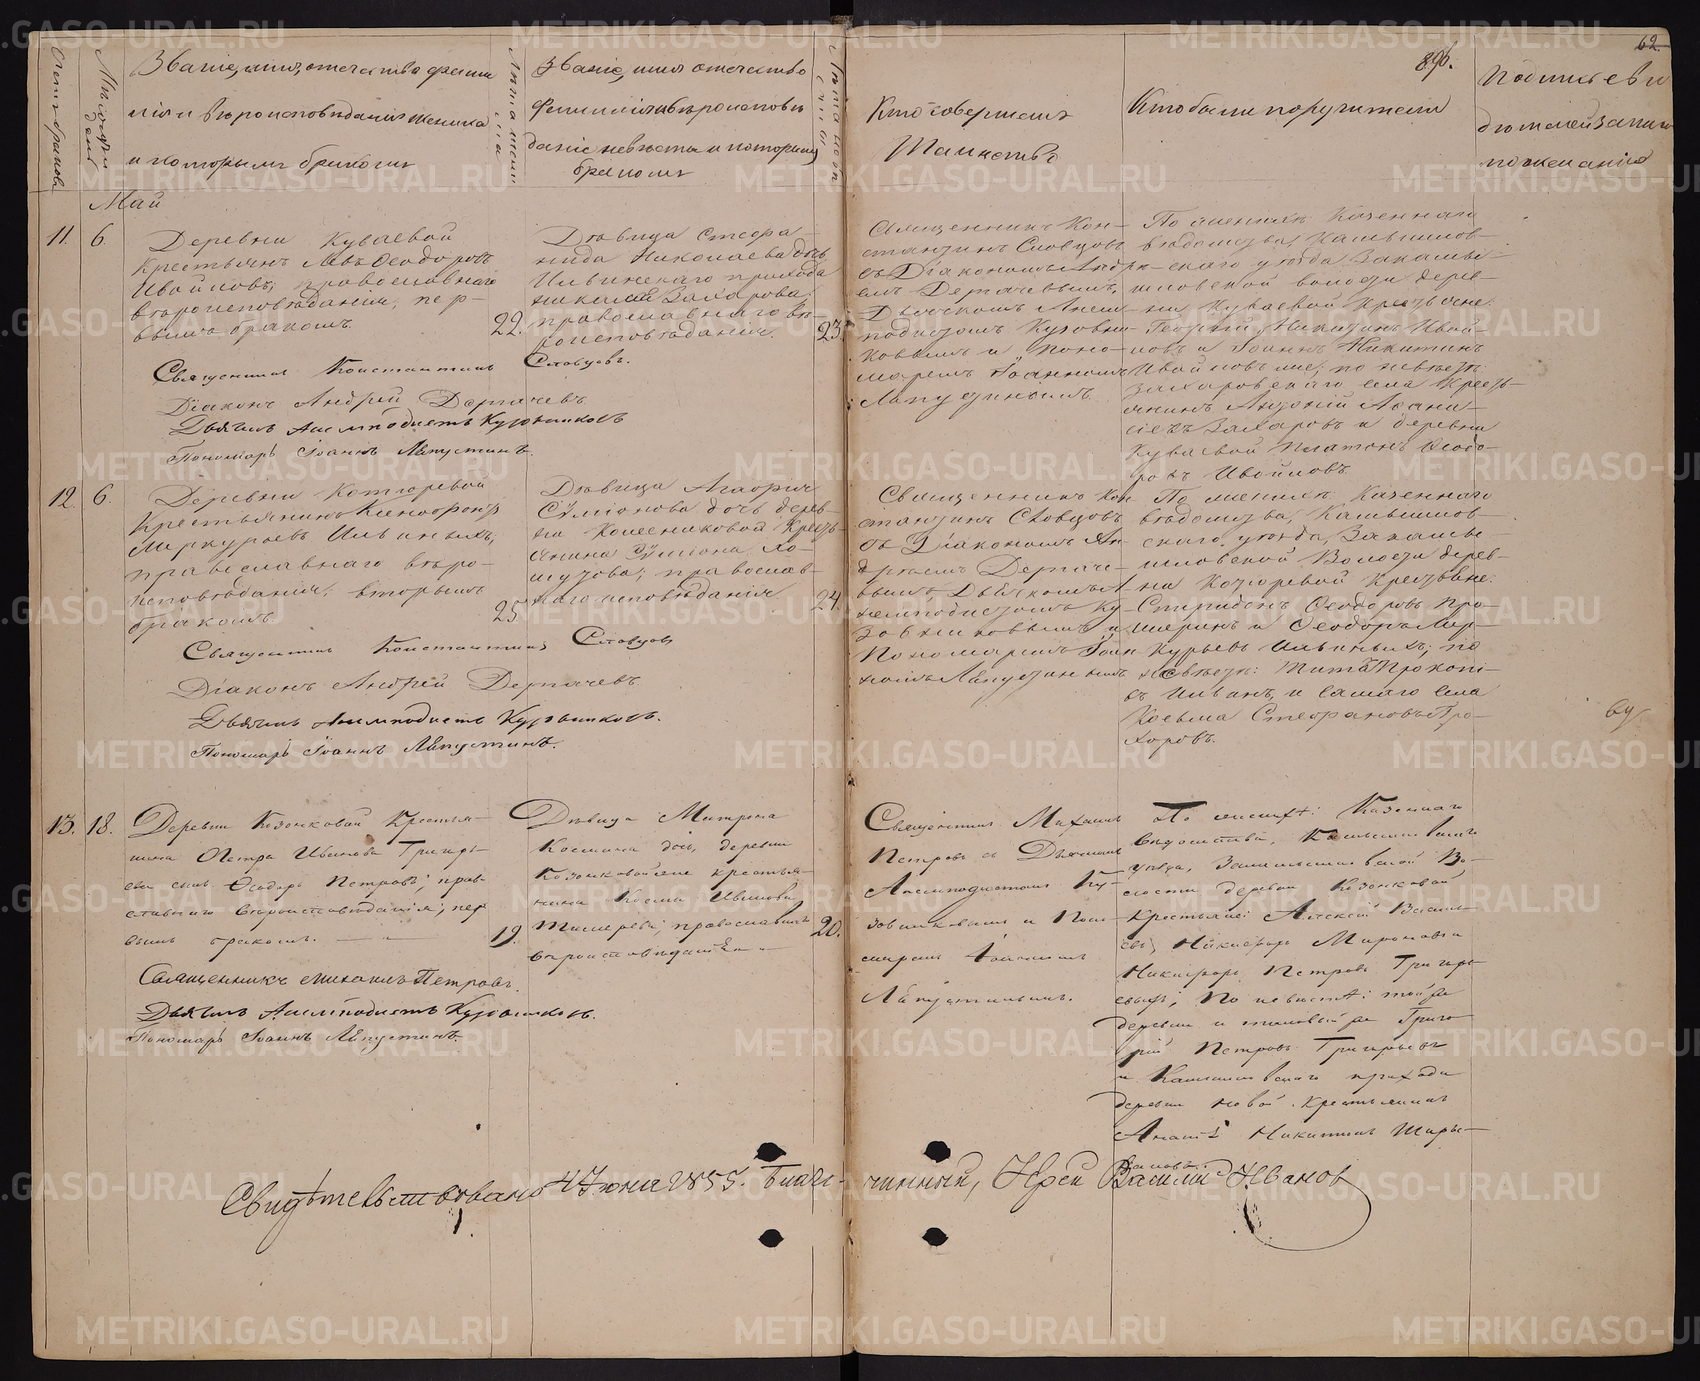 62.
896.
Счетъ браковъ.
Мѣсяцъ и день
Званіе, имя, отечество, фами-
лія и вѣроисповѣданіе жениха
и которымъ бракомъ
Лѣта жениха
Званіе, имя отечество
фамилія и вѣроисповѣ
даніе невѣсты и которымъ
бракомъ
Лѣта невѣсты
Кто совершалъ
Таинство
Кто были поручители
Подпись сви
дѣтелей записи
по желанію
Май
11.
6.
Деревни Куваевой
Крестьянъ Левъ Ѳеодоровъ
Ивойловъ, православнаго
вѣроисповѣданія, пер-
вымъ бракомъ.
22.
Дѣвица Стефа-
нида Николаева дочь
Ильинскаго прихода
Захарова,
православнаго вѣ-
роисповѣданія.
23.
Священникъ Кон-
стантинъ Словцовъ
съ Діакономъ Андре-
емъ Дергачевымъ,
Дьячкомъ Анем-
подистомъ Кузовни-
ковымъ и Поно-
маремъ Іоанномъ
Лапустинымъ.
По женихѣ Казеннаго
вѣдомства, Камышлов-
скаго уѣзда Закамы-
шловской волости дерев-
ни Куваевой крестьяне:
Георгій Никитинъ Ивой-
ловъ и Іоаннъ Никитинъ
Ивойловъ же; по невѣстѣ:
Захаровскаго села Кресть-
янинъ Антоній Аѳана-
сіевъ Захаровъ и деревни
Куваевой Платонъ Ѳеодо-
ровъ Ивойловъ.
Священникъ Константинъ Словцовъ.
Діаконъ Андрей Дергачевъ
Дьячекъ Анемподистъ Кузовниковъ
Пономарь Іоаннъ Лапустинъ.
12.
6.
Деревни Котюревой
Крестьянинъ Ксенофонтъ
Меркурьевъ Ильиныхъ,
православнаго вѣро-
исповѣданія, вторымъ
бракомъ.
25.
Дѣвица Агафія
Сѵміонова дочь дерев-
ни Колесниковой Кресть-
янина Сѵміона
православ-
наго исповѣданія
24.
Священникъ Кон
стантинъ Словцовъ
съ Діакономъ Ан-
дреемъ Дергаче-
вымъ Дьячкомъ А-
немподистомъ Ку-
зовниковымъ и
Пономаремъ Іоан
номъ Лапустинымъ
По женихѣ Казеннаго
вѣдомства, Камышлов-
скаго уѣзда, Закамы-
шловской Волости дерев-
ни Котюревой Крестьяне:
Спиридонъ Ѳеодоровъ
и Ѳеодоръ Мер-
курьевъ Ильиныхъ; по
невѣстѣ: Титъ Прокопі-
евъ и самаго села
Косьма Стефановъ Про-
хоровъ.
64
Священникъ Константинъ Словцовъ
Діаконъ Андрей Дергачевъ
Дьячекъ Анемподистъ Кузовниковъ.
Пономарь Іоаннъ Лапустинъ.
13.
18.
Деревни Козонковой Крестья-
нина Петра Иванова Григорь-
ева сынъ Ѳеодоръ Петровъ, прав-
славнаго вѣроисповѣданія, пер
вымъ бракомъ.
19.
Дѣвица Матрона
Косьмина дочь, деревни
Козонковой же крестья-
нина Косьмы Иванова
православнаго
вѣроисповѣданія
20.
Священникъ Михаилъ
Петровъ съ Дьячкомъ
Анемподистомъ Ку-
зовниковымъ и Поно-
маремъ Іоанномъ
Лапустинымъ.
По женихѣ: Казеннаго
вѣдомства, Камышловскаго
уѣзда, Закамышловской Во-
лости деревни Козонковой
крестьяне: Алексѣй Василь-
евъ, Никифоръ Мироновъ и
Никифоръ Петровъ Григорь-
евыхъ, по невѣстѣ: той же
деревни и таковый же Григо-
рій Петровъ Григорьевъ
и Камышловскаго прихода
деревни Новой крестьянинъ
Никитинъ Шары-
повъ.
Священникъ Михаилъ Петровъ.
Дьячекъ Анемподистъ Кузовниковъ.
Пономарь Іоаннъ Лапустинъ.
Свидѣтельствовано 4 Іюня 1855. Благо-чинный, Іерей Василій Ивановъ